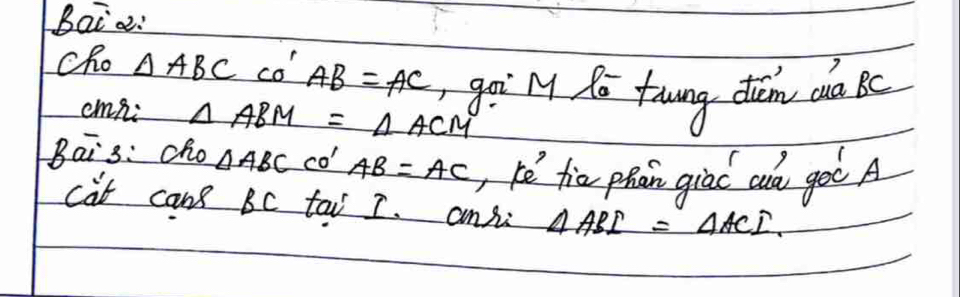 Bài 2:
Cho Δ ABC có AB = AC, gọi M là trung điểm của BC
cmr: Δ ABM = Δ ACM
Bài 3: Cho ΔABC có AB = AC, kẻ tia phân giác của góc A
cắt cạnh BC tại I. cmr: Δ ABI = ΔACI.